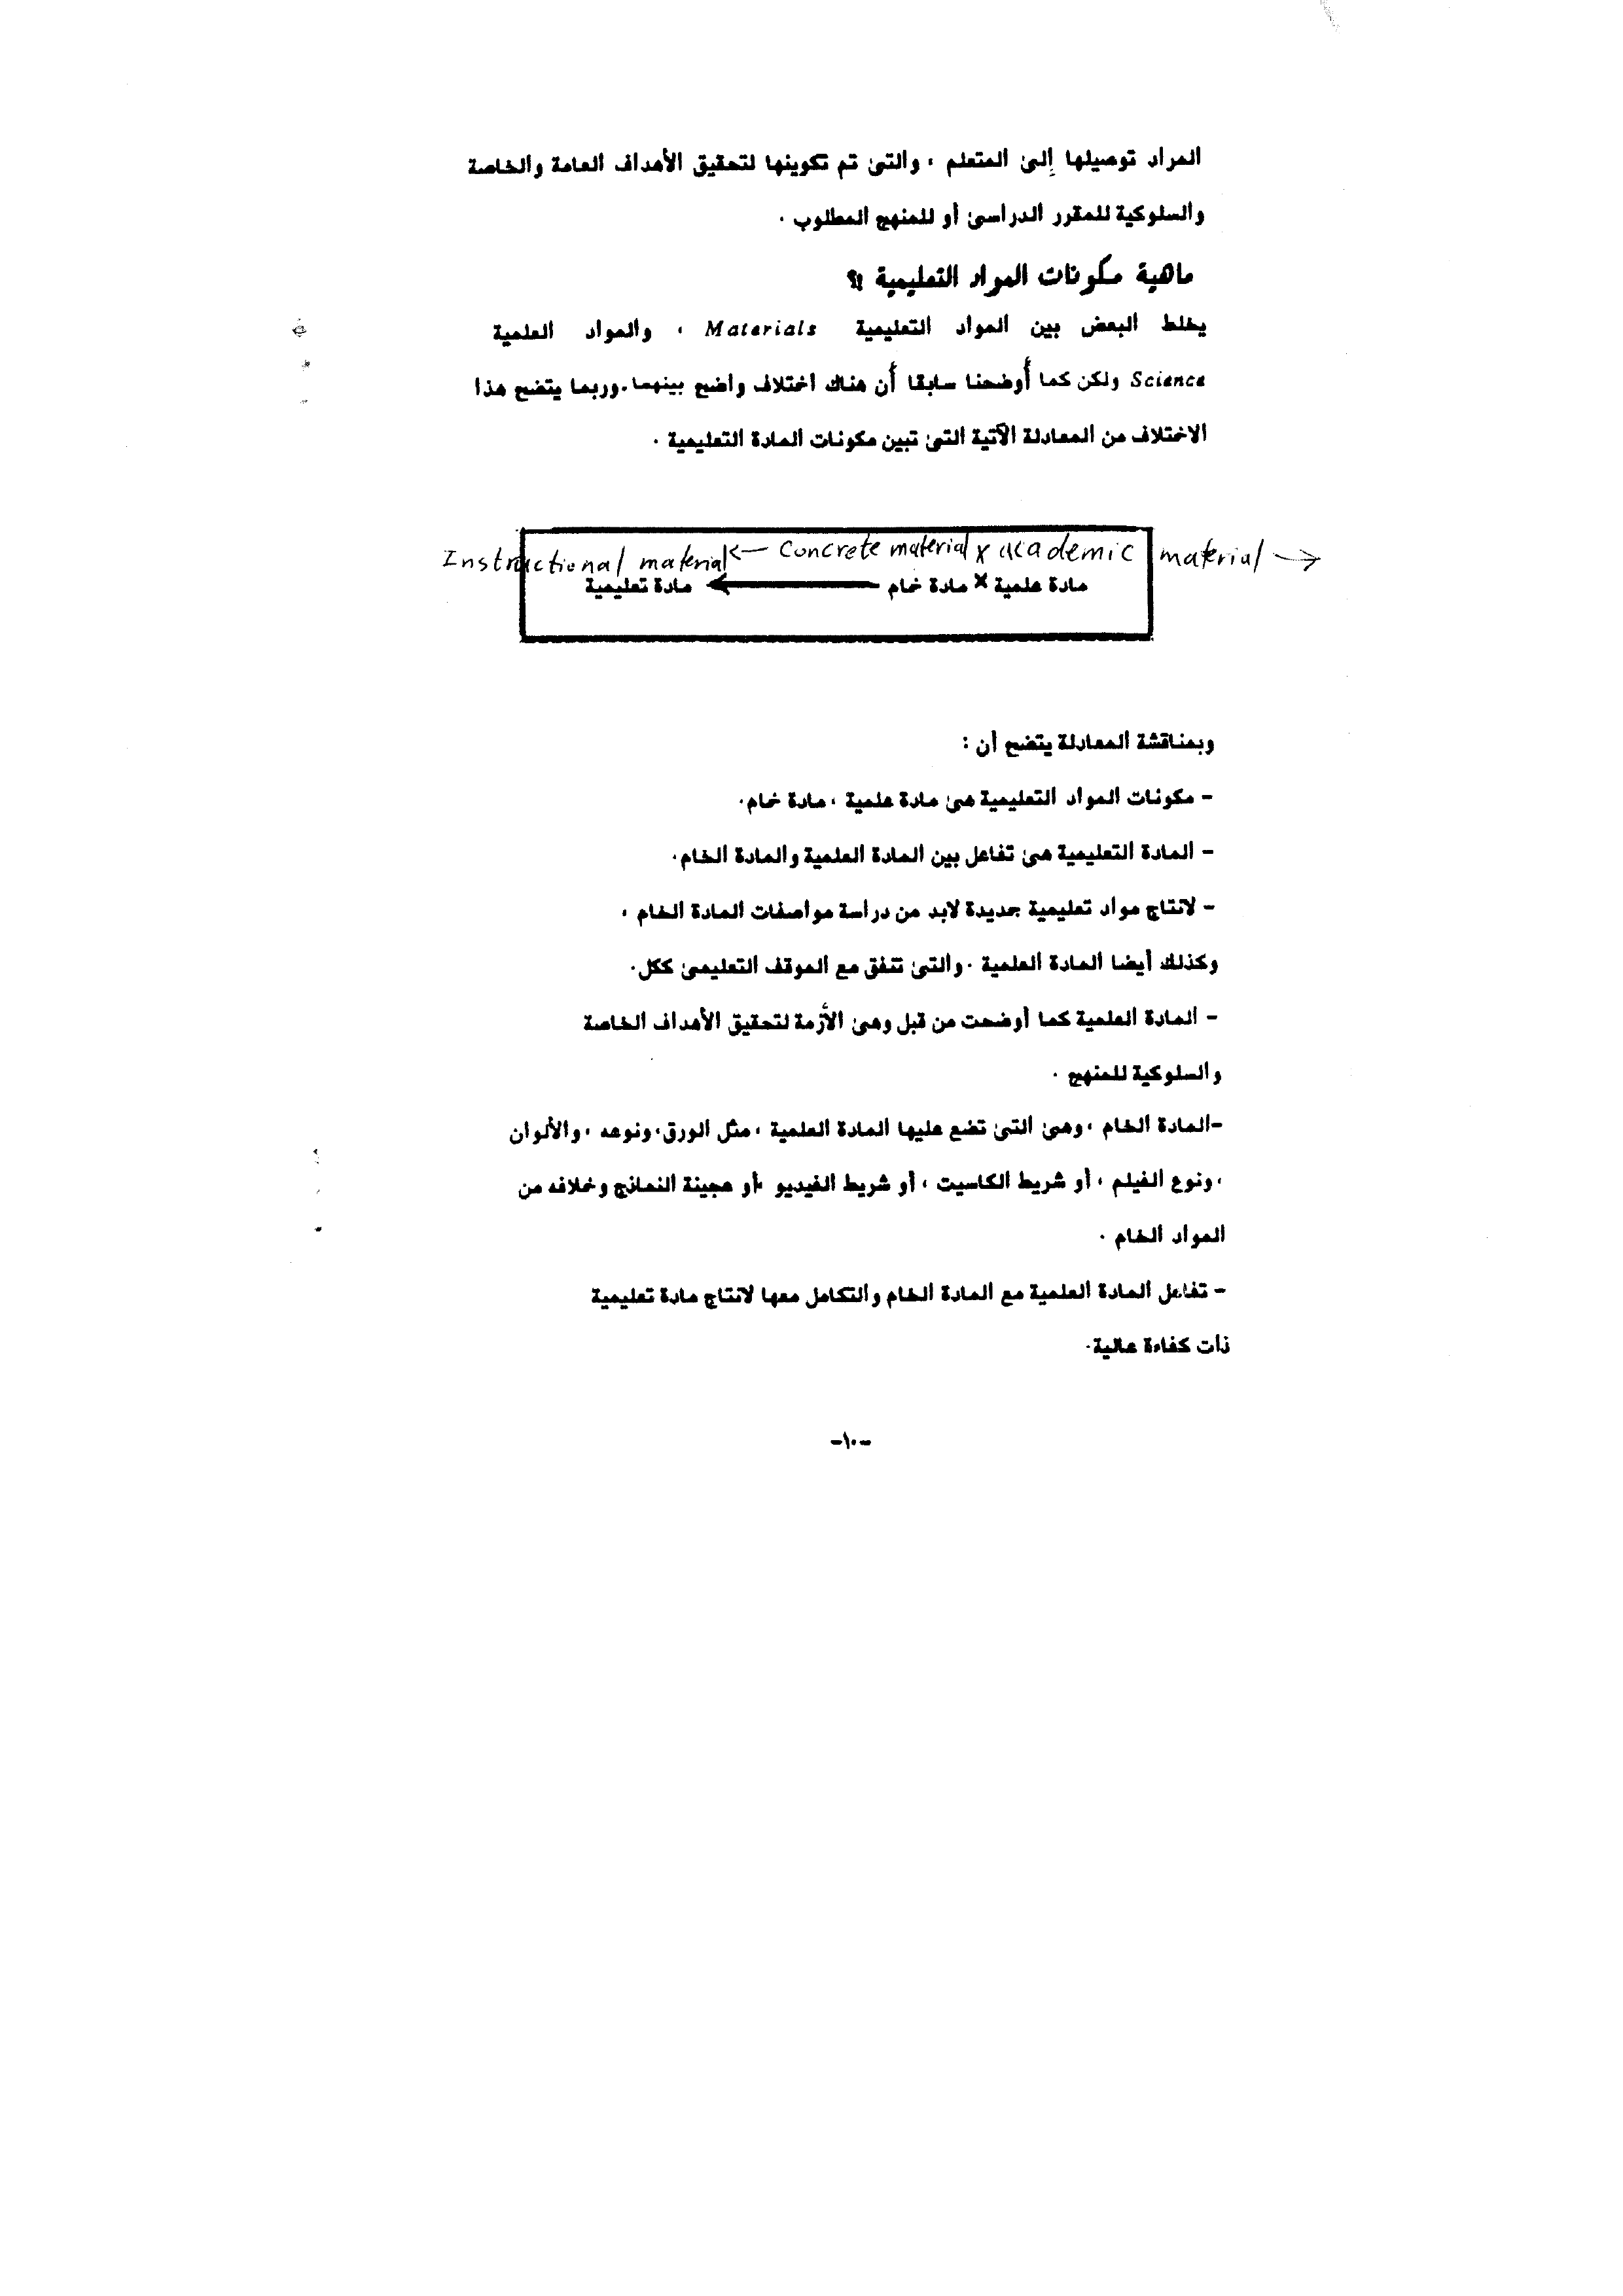 المراد توصيلها إلى المتعلم ، والتى تم تكوينها لتحقيق الأهداف العامة والخاصة
والسلوكية للمقرر الدراسى أو للمنهج المطلوب .
ماهية مكونات المواد التعليمية ؟!
يخلط البعض بين المواد التعليمية Materials ، والمواد العلمية
Science ولكن كما أوضحنا سابقا أن هناك اختلاف واضح بينهما .وربما يتضح هذا
الاختلاف من المعادلة الآتية التى تبين مكونات المادة التعليمية .
Instructional material <— Concrete material x academic material —>
مادة علمية × مادة خام ← مادة تعليمية
وبمناقشة المعادلة يتضح أن :
- مكونات المواد التعليمية هى مادة علمية ، مادة خام.
- المادة التعليمية هى تفاعل بين المادة العلمية والمادة الخام.
- لانتاج مواد تعليمية جديدة لابد من دراسة مواصفات المادة الخام ،
وكذلك أيضا المادة العلمية . والتى تتفق مع الموقف التعليمى ككل.
- المادة العلمية كما أوضحت من قبل وهى الأزمة لتحقيق الأهداف الخاصة
والسلوكية للمنهج .
-المادة الخام ، وهى التى تضع عليها المادة العلمية ، مثل الورق، ونوعه ، والألوان
، ونوع الفيلم ، أو شريط الكاسيت ، أو شريط الفيديو ،أو عجينة النماذج وخلافه من
المواد الخام .
- تفاعل المادة العلمية مع المادة الخام والتكامل معها لانتاج مادة تعليمية
ذات كفاءة عالية.
-١٠-